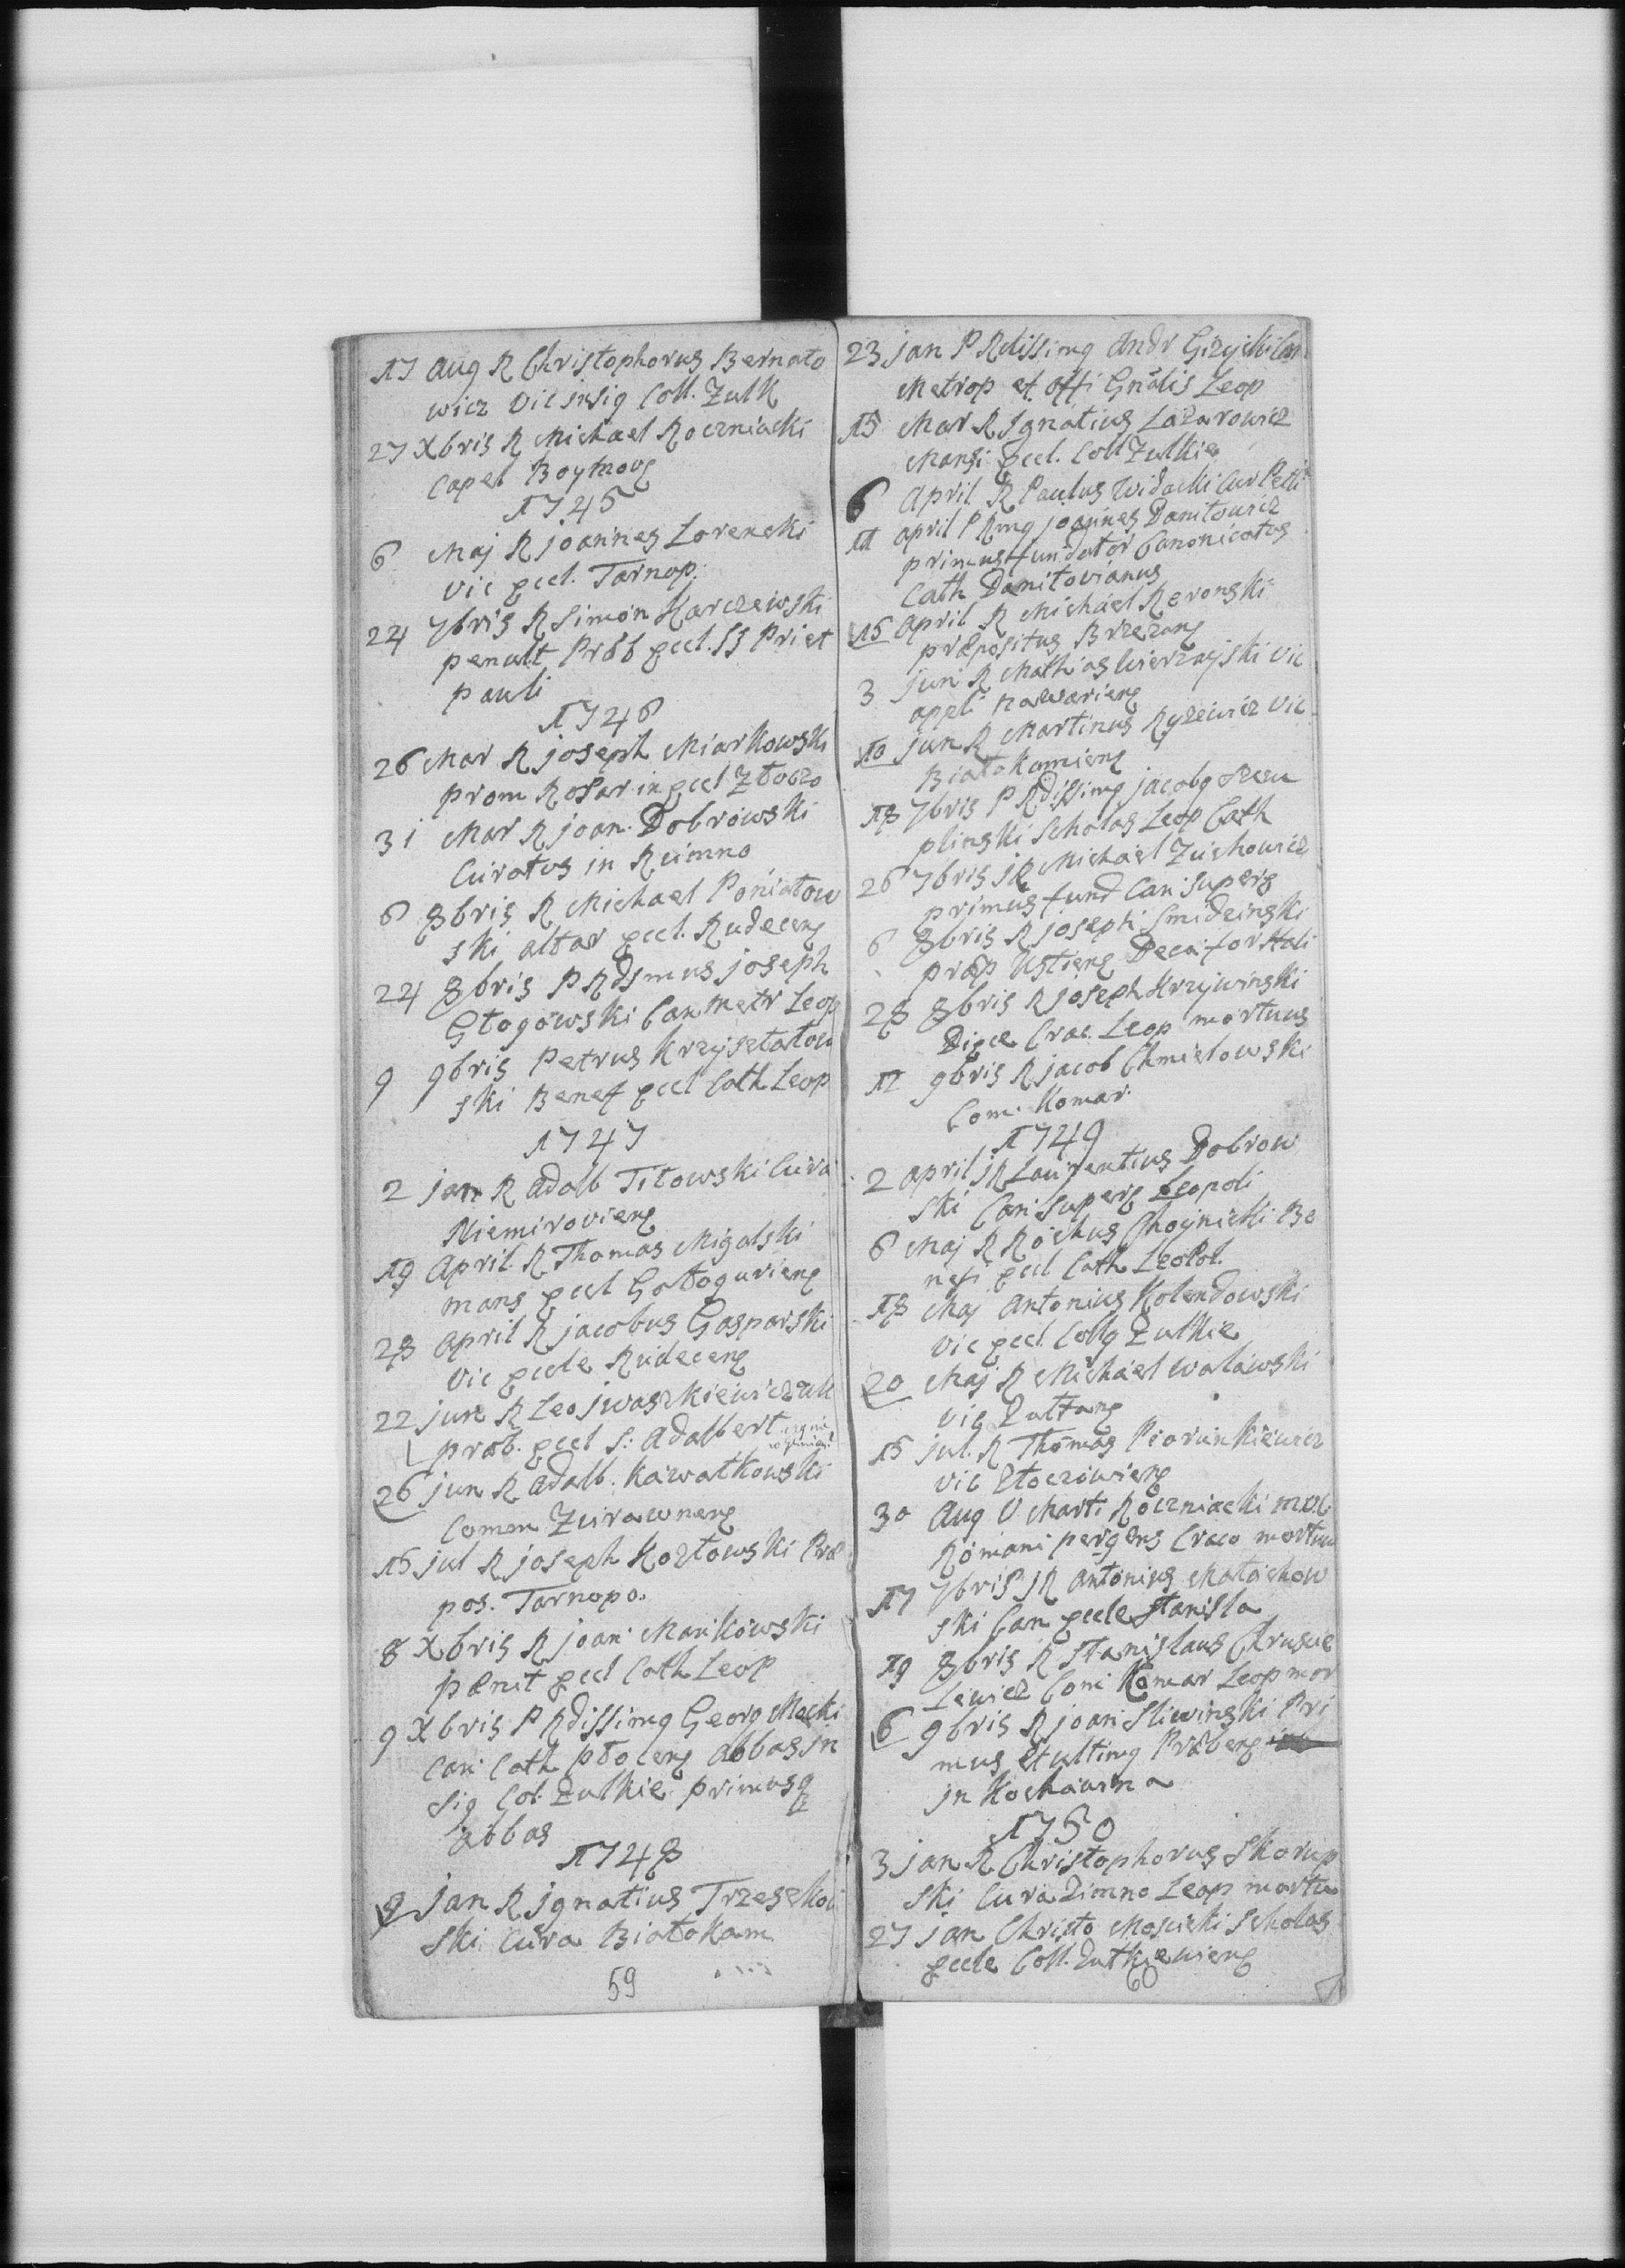 17 Aug R Christophorus Bernato
wicz Vic insig Coll. Zulk
27 Xbris R Michael Roczniacki
Capel Boymovg
1745
6 Maj R Joannes Lorencki
Vic Eccl. Tarnop.
24 7bris R Simon Karczewski
penult Prob Eccl. SS Pri et
pauli
1746
26 Mar R Joseph Miarkowski
prom Rosar in Eccl Złoczo
31 Mar R Joan. Dobrowski
Curatus in Rumno
6 8bris R Michael Poniatow
ski altar Eccl. Rudeceng
24 8bris P Rdsmus Joseph
Głogowski Can Metr Leop
9 9bris Petrus Krzyształow
ski Benef Eccl Cath Leop
1747
2 Jan R Adalb Titowski Cura
Niemirovieng
19 April R Thomas Migalski
mans Eccl Gołogurieng
28 April R Jacobus Gasparski
Vic Eccle Rudeceng
22 Jun R Leo Jwaszkiewicz
prob. Eccl S: Adalbert
26 Jun R Adalb. Kawałkowski
Comen Zurawneng
15 Jul R Joseph Kozłowski Præ
pos. Tarnopo.
8 Xbris R Joan Mankowski
pænit Eccl Cath Leop
9 Xbris P Rdissimg Georg Mocki
Can Cath Płoceng Abbas Jn
sig Col: Zulkie primusq
abbas
1748
8 Jan R Jgnatius Trzeszkow
ski Cura Białokam
59
23 Jan P Rdissimg Andr Giżycki Can
Metrop et offi Gnalis Leop
15 Mar R Jgnatius Lazarowicz
Mansi Eccl. Coll Zulkie
6 April R Paulus Widacki Cur
11 April P Rmg Joannes Daniłowicz
primus fundator Canonicatus
Cath Daniłovianus
15 April R Michael Rewonski
præpositus Brzezang
3 Jun R Mathias Wierzayski Vic
appli Nawarieng
10 Jun R Martinus Ryzewicz Vic
Białokamieng
18 7bris P Rdissimg Jacobg Szcu
plinski Scholas Leop Cath
26 7bris JR Michael Zuchowicz
primus fund Can: Superg
6 8bris R Joseph Smidzinski
præp Ustieng Decan for Hali
28 8bris R Joseph Krzywinski
Diœce Crac. Leop mortuus
12 9bris R Jacob Chmielowski
Com. Komar.
1749
2 April JR Laurentius Dobrow
ski Can Superg Leopoli
6 Maj R Rochus Choynicki Be
nefi Eccl Cath Leopol.
18 Maj Antonius Kolendowski
Vic Eccl. Collg Zulkie
20 Maj R Michael Waławski
Vic Zaltang
15 Jul. R Thomas Piorunkiewicz
Vic Złoczowieng
30 Aug V Marti Roczniacki
Romani pergens Craco mortuu
17 7bris JR Antonius Małachow
ski Can Eccle Stanisla
19 8bris R Stanislaus Chruscie
lewicz Com Komar Leop mor
6 9bris R Joan Sliwinski Pri
mus et ultimg Præbeng
in Kochawina
1750
3 Jan R Christophorus Skorup
ski Cura Zimno Leop mortu
27 Jan Christo Moscicki Scholas
Eccle Coll. Zulkiewieng
60